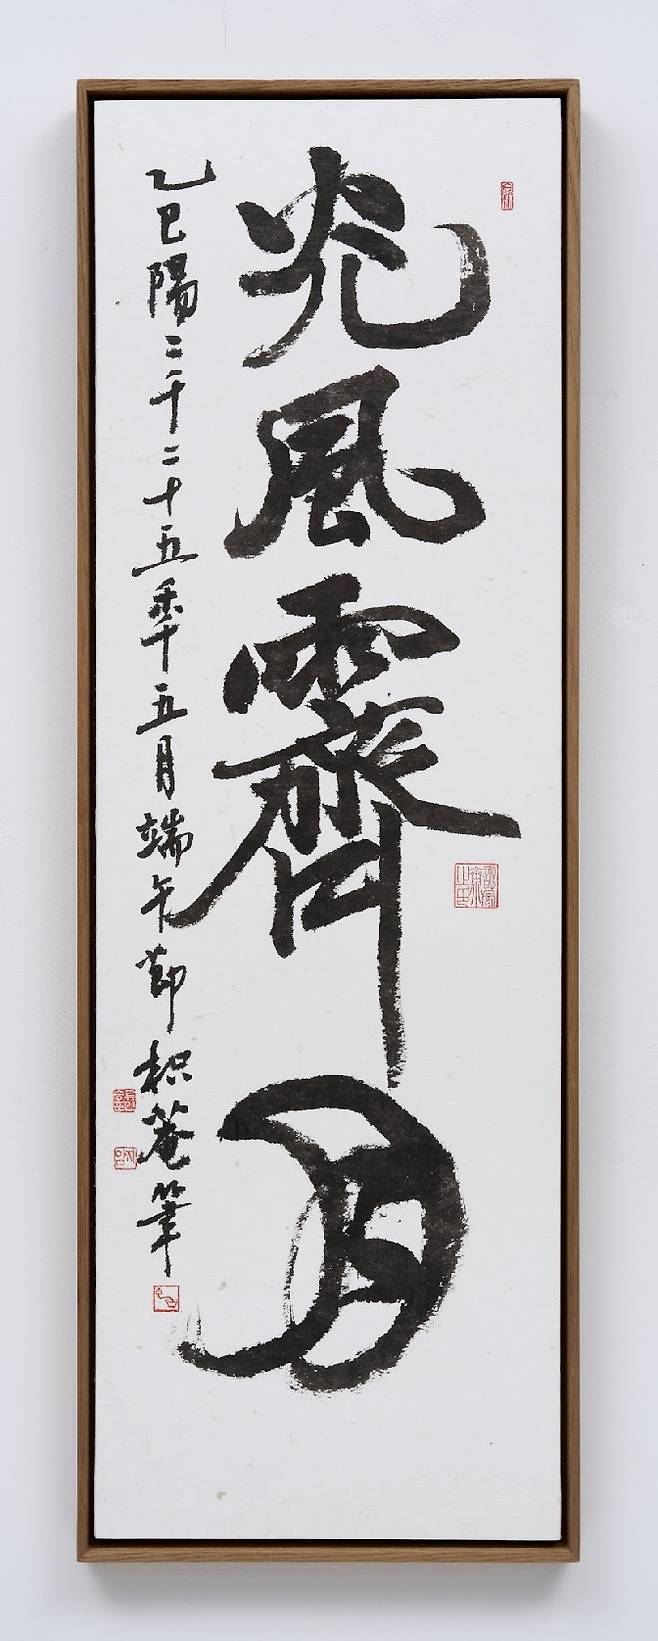 光風霽月
乙巳陽二千二十五年五月端午節枳菴筆